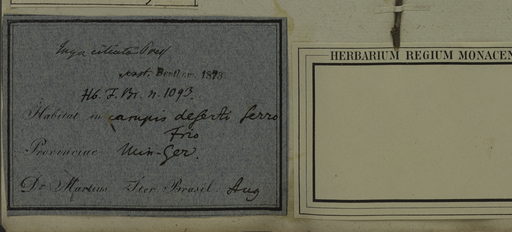 Inga ciliata Presl
Hb. F. Br. n. 1093.
Habitat in campis deserti Serro
Frio
Provinciae Min. Ger.
Dr. Martius Iter Brasil. Aug
HERBARIUM REGIUM MONACEN